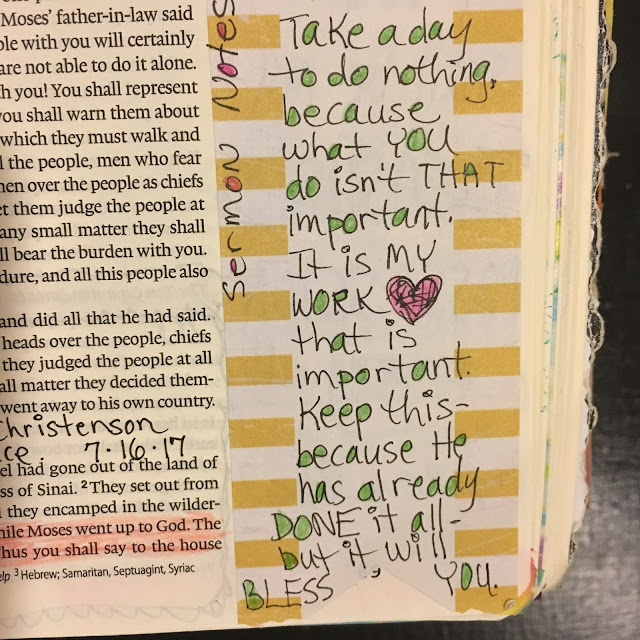 Moses' father-in-law said
ble with you will certainly
are not able to do it alone.
h you! You shall represent
you shall warn them about
which they must walk and
l the people, men who fear
men over the people as chiefs
et them judge the people at
any small matter they shall
ll bear the burden with you.
dure, and all this people also
and did all that he had said.
heads over the people, chiefs
they judged the people at all
all matter they decided them-
went away to his own country.
Christenson
ce 7.16.17
el had gone out of the land of
ss of Sinai. ²They set out from
d they encamped in the wilder-
hile Moses went up to God. The
hus you shall say to the house
elp ³Hebrew; Samaritan, Septuagint, Syriac
Sermon Notes
Take a day
to do nothing,
because
what YOU
do isn't THAT
important.
It is MY
WORK
that is
important.
Keep this-
because He
has already
DONE it all-
but it will
BLESS YOU.